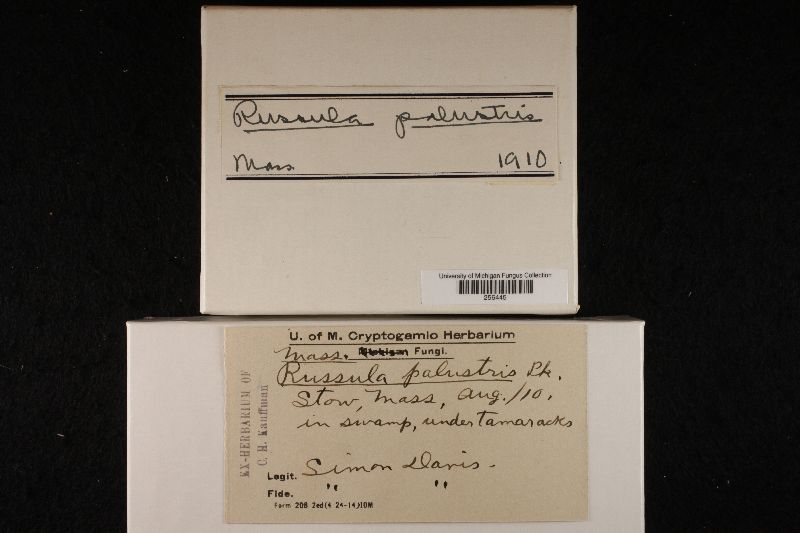 Russula palustris
Mass. 1910
University of Michigan Fungus Collection
256445
U. of M. Cryptogamic Herbarium
Mass. Michigan Fungi.
Russula palustris Pk.
Stow, Mass, Aug./10.
in swamp, under tamaracks
Legit. Simon Davis.
Fide. " "
Form 208 2ed(4 24-14)10M
EX-HERBARIUM OF
C. H. Kauffman